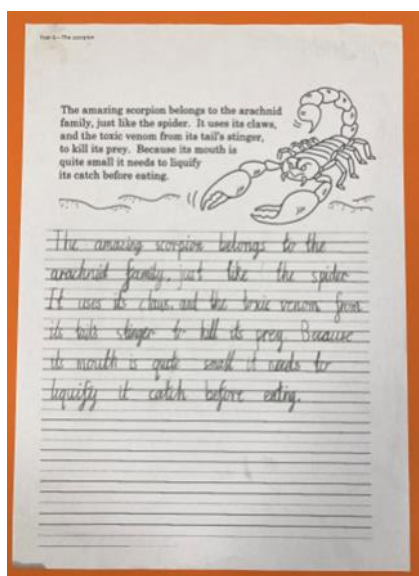 Year 6 - The scorpion
The amazing scorpion belongs to the arachnid
family, just like the spider. It uses its claws,
and the toxic venom from its tail's stinger,
to kill its prey. Because its mouth is
quite small it needs to liquify
its catch before eating.
The amazing scorpion belongs to the
arachnid family, just like the spider
It uses its claws, and the toxic venom from
its tails stinger to kill its prey Because
its mouth is quite small it needs to
liquify it catch before eating.